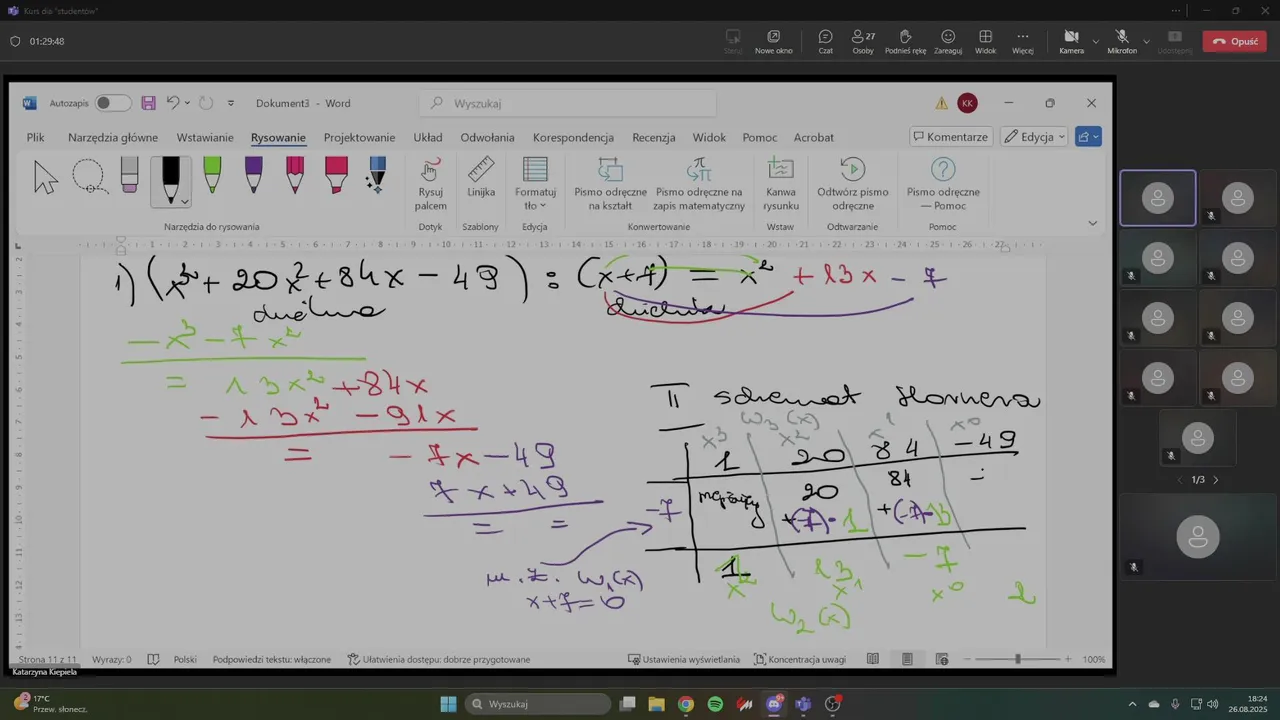 Kurs dla "studentów"
01:29:48
Steruj Nowe okno Czat 27 Osoby Podnieś rękę Zareaguj Widok Więcej Kamera Mikrofon Udostępnij Opuść
Autozapis Dokument3 - Word Wyszukaj KK
Plik Narzędzia główne Wstawianie Rysowanie Projektowanie Układ Odwołania Korespondencja Recenzja Widok Pomoc Acrobat Komentarze Edycja
Rysuj palcem Linijka Formatuj tło Pismo odręczne na kształt Pismo odręczne na zapis matematyczny Kanwa rysunku Odtwórz pismo odręczne Pismo odręczne — Pomoc
Narzędzia do rysowania Dotyk Szablony Edycja Konwertowanie Wstaw Odtwarzanie Pomoc
1) (x³ + 20x² + 84x - 49) : (x+7) = x² + 13x - 7
- x³ - 7x²
= 13x² + 84x
- 13x² - 91x
= - 7x - 49
7x + 49
= =
II schemat Hornera
W₃(x)
x³ x² x¹ x⁰
1 20 84 -49
20 84
-7 +(-7)·1 +(-7)·13
1 13 -7
x² x¹ x⁰
m. z. W₁(x)
x+7=0
W₂(x)
1/3
Strona 11 z 11 Wyrazy: 0 Polski Podpowiedzi tekstu: włączone Ułatwienia dostępu: dobrze przygotowane Ustawienia wyświetlania Koncentracja uwagi 100%
Katarzyna Kiepiela
17°C
Przew. słonecz.
Wyszukaj
18:24
26.08.2025